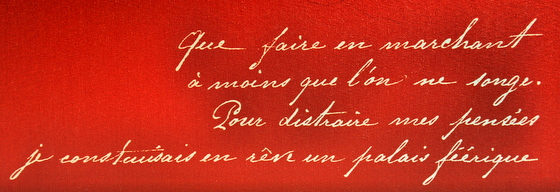 Que faire en marchant
à moins que l'on ne songe.
Pour distraire mes pensées
je construisais en rêve un palais féérique